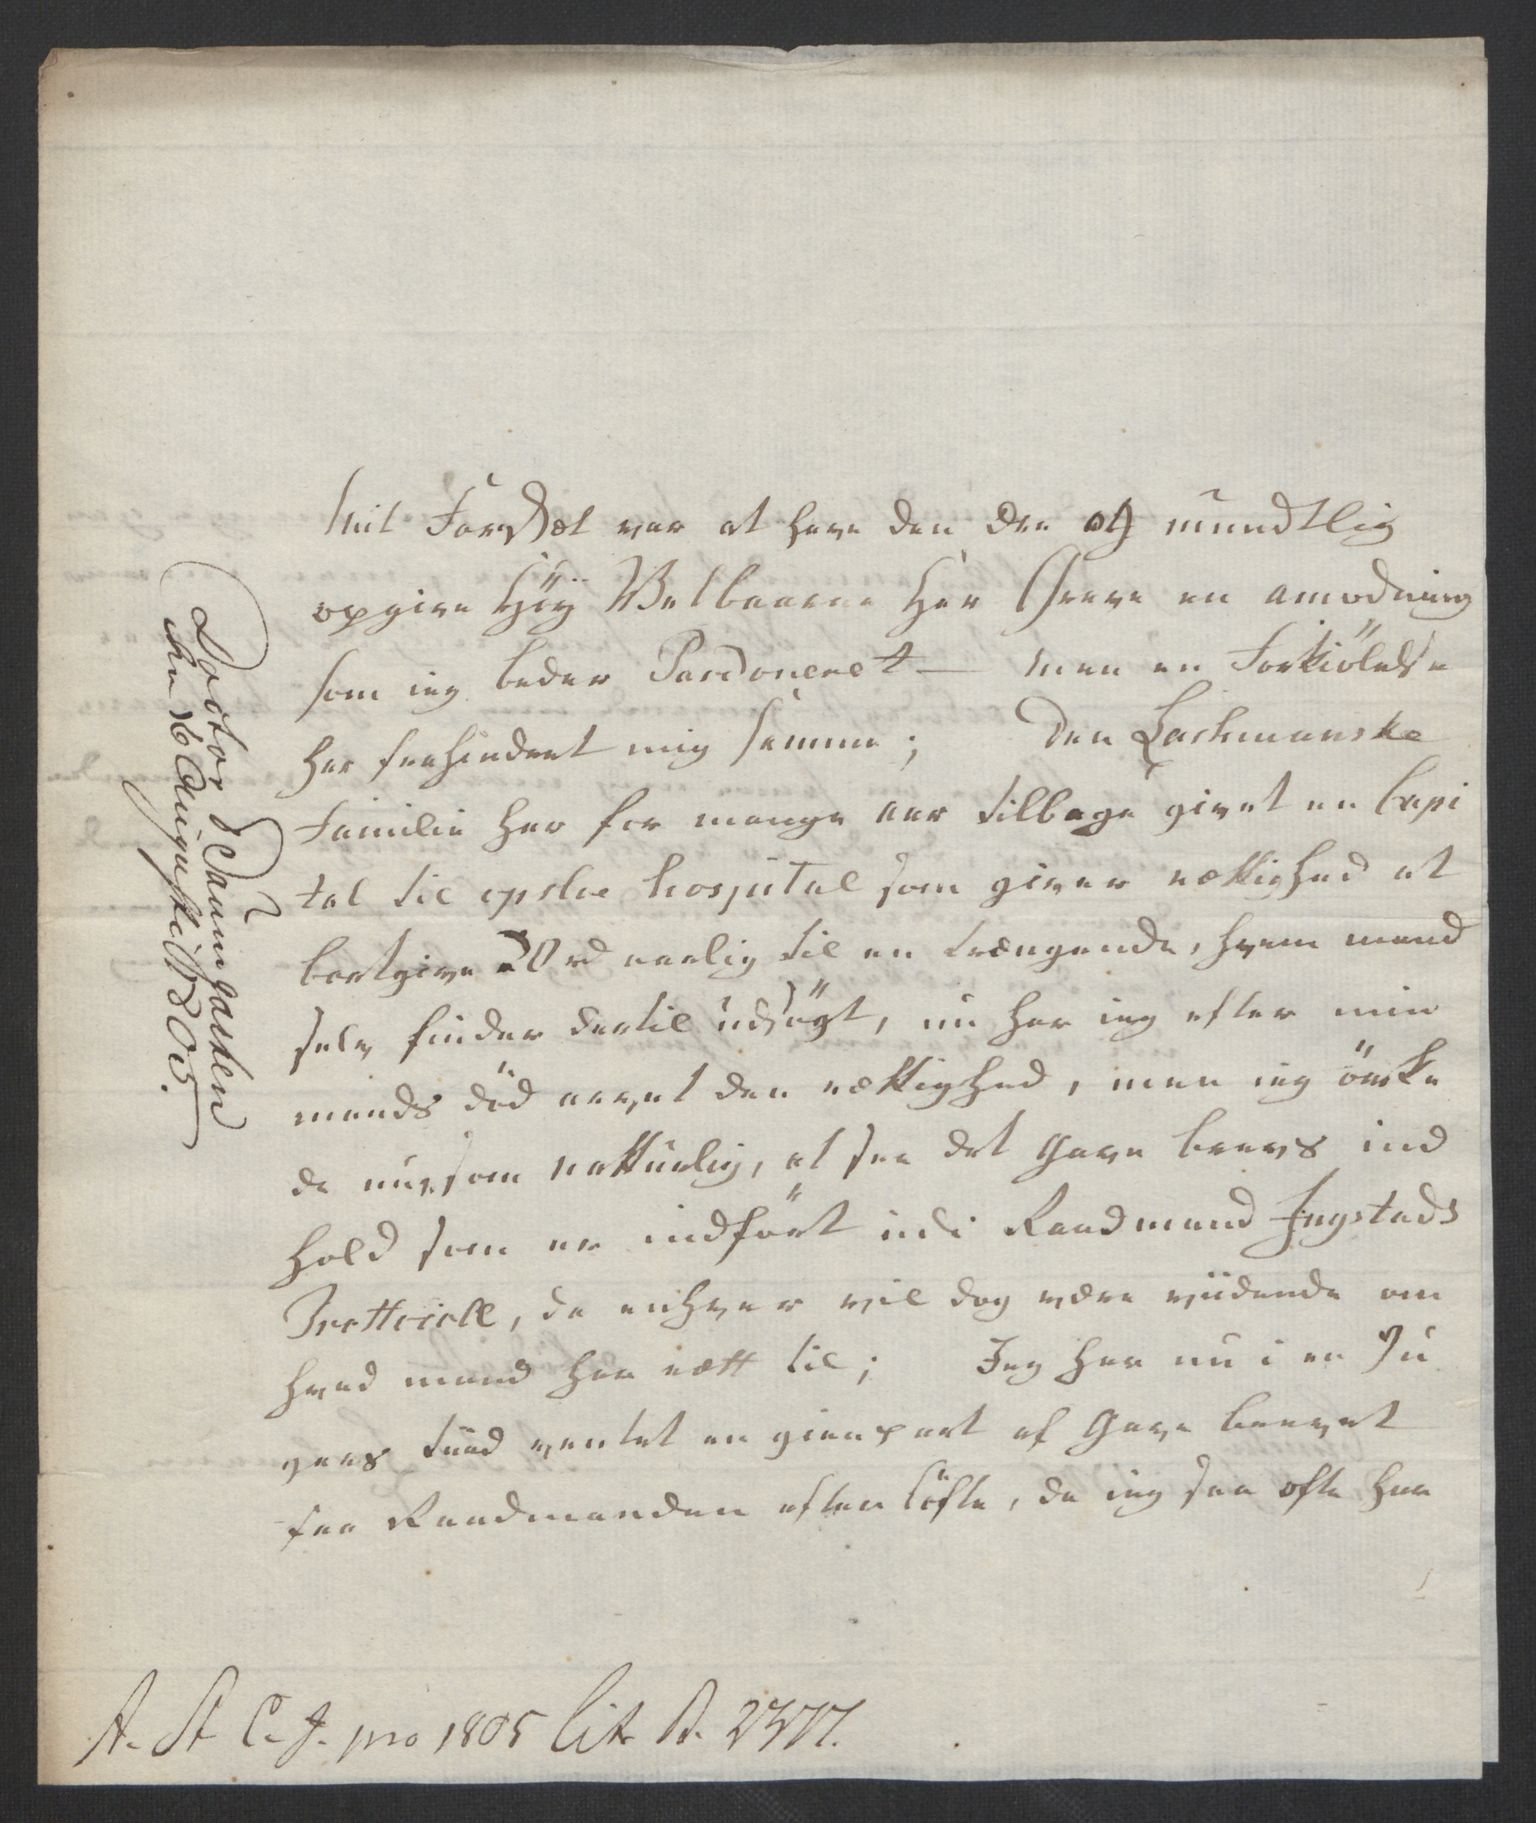 Mit Forsæt var at have den Ære og mundtlig
opgive Høÿ Velbaarne Her Greve en amodning
som ieg beder Pardoneret — men en Forkiölelse
har forhindret mig samme; Den Lachmanske
Familie har for mange aar tilbage givet en Capi
tal til opsloe hospital som giver rettighed at
bortgive 20 rd aarlig til en trængende, hvem mand
selv finder dertil udsögt, nu har ieg efter min
mands död arvet den rettighed, men ieg önske
de nu, som natturlig, at see det gave brevs ind
hold som er indfört udi Raadmand Ingstads
Protterioll, da enhver vil dog være viidende om
hvad mand har rett til; Jeg har nu i en Ju
gers tiid ventet en gienpart af Gave brevet
fra Raadmanden efter löfte, da ieg saa ofte har
Doctor Baumgarten
den 16 Augusti 1805.
A. St C. J. pro 1805 Litr B. 2377.